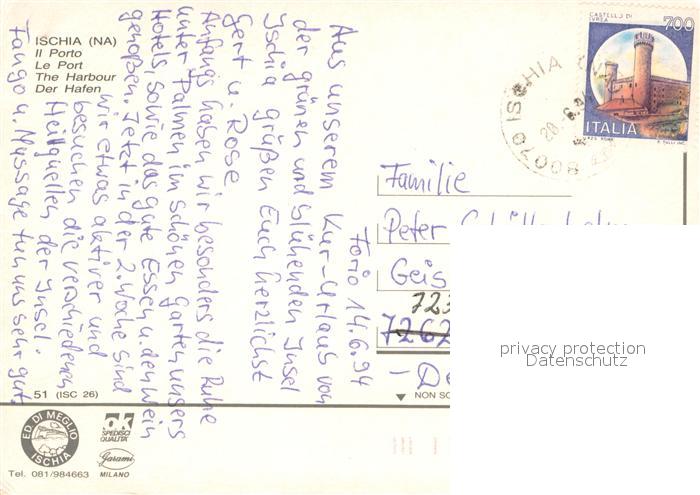 ISCHIA (NA)
Il Porto
Le Port
The Harbour
Der Hafen
Forio 14.6.94
Aus unserem Kur-Urlaub von
der grünen und blühenden Insel
Ischia grüßen Euch herzlichst
Gert u. Rose
Anfangs haben wir besonders die Ruhe
unter Palmen im schönen Garten unsers
Hotels, sowie das gute Essen u. den Wein
genoßen. Jetzt in der 2. Woche sind
wir etwas aktiver und
besuchen die verschiedenen
Heilquellen der Insel.
Tango u. Massage tun uns sehr gut.
51 (ISC 26)
ED. DI MEGLIO
ISCHIA
Tel. 081/984663
SPEDISCI
QUALITÀ
Garami
MILANO
CASTELLO DI
IVREA
700
ITALIA
80070 ISCHIA
Familie
Peter
Geis
723
7262
- De
NON SC
privacy protection
Datenschutz